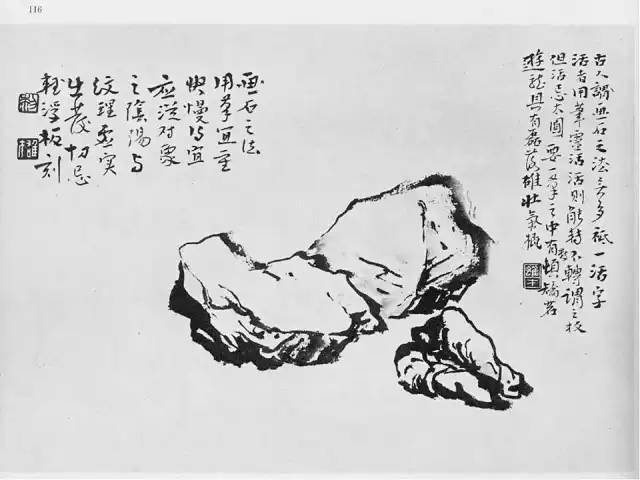 116
古人謂画石之法多祗一活字
活者用筆靈活活則能轉不轉謂之板
但活忌太圓要一筆之中有頓矯若
遊龍具有磊落雄壯氣概
画石之法
用筆宜重
快慢得宜
应從对象
之陰陽与
紋理虛實
出發切忌
輕浮板刻